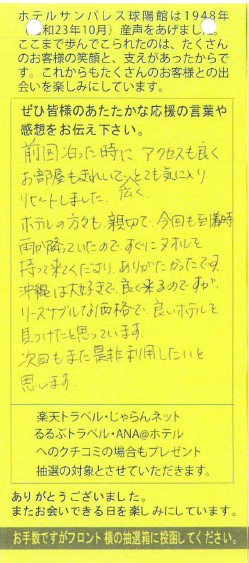 ホテルサンパレス球陽館は1948年
和23年10月）産声をあげまし
ここまで歩んでこられたのは、たくさん
のお客様の笑顔と、支えがあったからで
す。これからもたくさんのお客様との出
会いを楽しみにしています。
ぜひ皆様のあたたかな応援の言葉や
感想をお伝え下さい。
前回泊った時に、アクセスも良く
お部屋もきれいで広くとても気に入り
リピートしました。
ホテルの方々も親切で、今回も到着時
雨が降っていたので、すぐにタオルを
持って来てくださり、ありがたかったです。
沖縄は大好きで、良く来るのですが、
リーズナブルな価格で、良いホテルを
見つけたと思っています。
次回もまた是非利用したいと
思します。
楽天トラベル・じゃらんネット
るるぶトラベル・ANA@ホテル
へのクチコミの場合もプレゼント
抽選の対象とさせていただきます。
ありがとうございました。
またお会いできる日を楽しみにしています。
お手数ですがフロント横の抽選箱に投函してください。